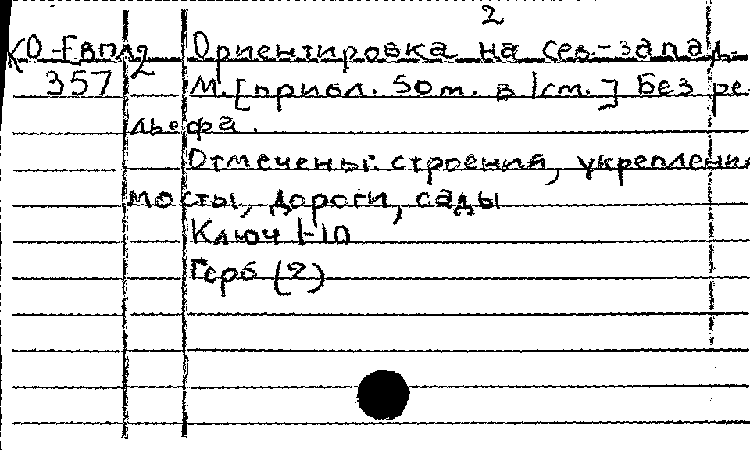 2
КО-Евпл2 Ориентировка на сев-запад.
357 М.[прибл. 50м. в 1см.] Без ре
льефа.
Отмечены: строения, укрепления
мосты, дороги, сады
Ключ 1-10
Герб (2)